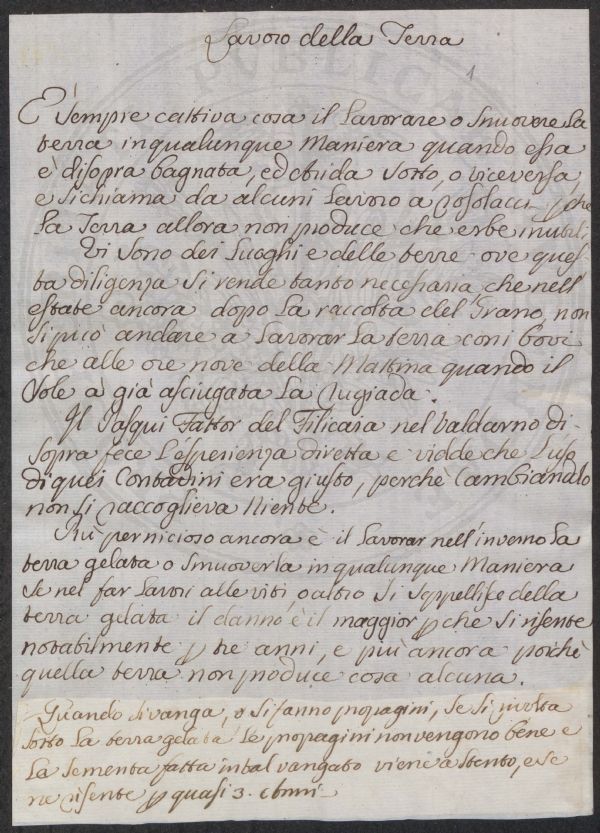 Lavoro della Terra
1
È sempre cattiva cosa il Lavorare o smuovere La
terra in qualunque Maniera quando essa
è disopra bagnata, ed Arida sotto, o viceversa
e si chiama da alcuni Lavoro a rosolacci pche
La Terra allora non produce che erbe inutili
Vi sono dei Luoghi e delle terre ove ques-
ta diligenza si rende tanto necessaria che nell'
estate ancora dopo La raccolta del Grano, non
si può andare a Lavorar La terra con i bovi
che alle ore nove della Mattina quando il
Sole à già asciugata La rugiada.
Il Pasqui Fattor del Filicaia nel Valdarno di-
sopra fece L'esperienza diretta e vidde che L'uso
di quei Contadini era giusto, perchè Cambiandolo
non si raccoglieva Niente.
Più pernicioso ancora è il Lavorar nell'inverno La
terra gelata o smuoverla in qualunque Maniera
Se nel far Lavori alle viti, o altro si seppellisce della
terra gelata il danno è il maggior pche si risente
notabilmente p tre anni, e più ancora poichè
quella terra non produce cosa alcuna.
Quando si vanga, o si fanno propagini, Se si rivolta
sotto La terra gelata Le propagini non vengono bene e
La Sementa fatta in tal vangato viene a stento, e se
ne risente p quasi 3. Anni
PVBLICA